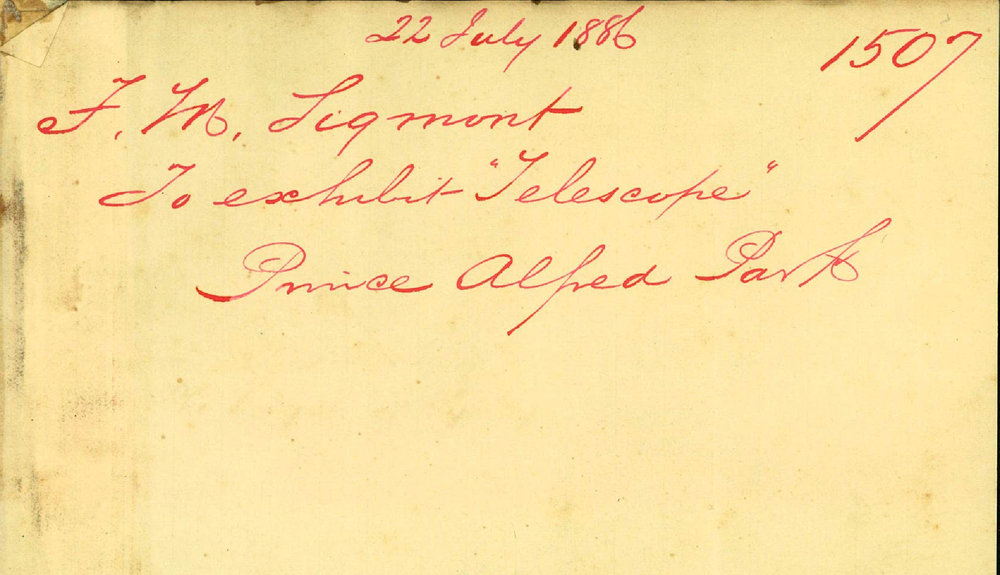 22 July 1886
1507
F. M. Sigmont
To exhibit "Telescope"
Prince Alfred Park